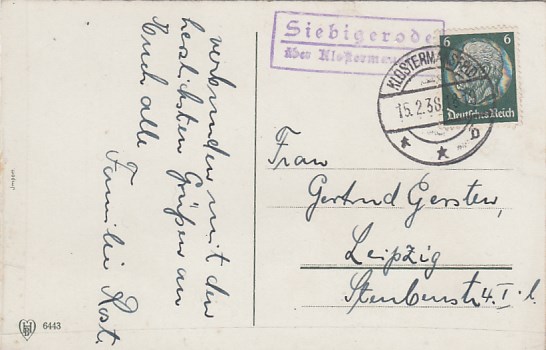 verbunden mit den
herzlichsten Grüßen an
Euch alle
Familie Rost.
Siebigerode
über Klosterman
KLOSTERMANSFELD
15.2.38
b
6 6
Deutsches Reich
Frau
Gertrud Gersten,
Leipzig
4. I. l.
6443